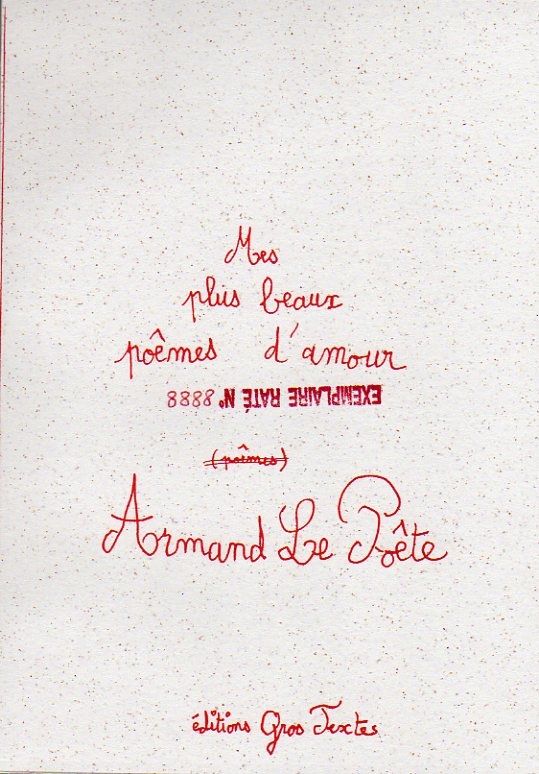 Mes
plus beaux
poêmes d'amour
EXEMPLAIRE RATÉ N° 8888
(poêmes)
Armand Le Poête
éditions Gros Textes